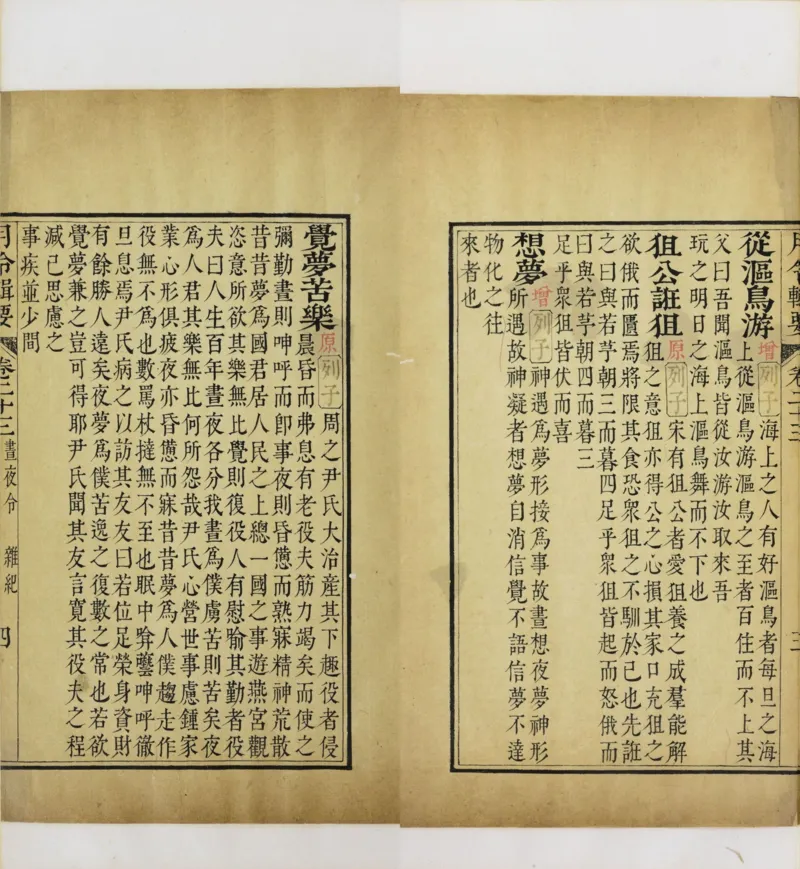 月令輯要 卷二十三 三
從漚鳥游 增 列子 海上之人有好漚鳥者每旦之海
上從漚鳥游漚鳥之至者百住而不上其
父曰吾聞漚鳥皆從汝游汝取來吾
玩之明日之海上漚鳥舞而不下也
狙公誑狙 原 列子 宋有狙公者愛狙養之成羣能解
狙之意狙亦得公之心損其家口充狙之
欲俄而匱焉將限其食恐衆狙之不馴於己也先誑
之曰與若芧朝三而暮四足乎衆狙皆起而怒俄而
曰與若芧朝四而暮三
足乎衆狙皆伏而喜
想夢 增 列子 神遇爲夢形接爲事故晝想夜夢神形
所遇故神凝者想夢自消信覺不語信夢不達
物化之往
來者也
覺夢苦樂 原 列子 周之尹氏大治産其下趣役者侵
晨昏而弗息有老役夫筋力竭矣而使之
彌勤晝則呻呼而卽事夜則昏憊而熟寐精神荒散
昔昔夢爲國君居人民之上總一國之事遊燕宮觀
恣意所欲其樂無比覺則復役人有慰喻其勤者役
夫曰人生百年晝夜各分我晝爲僕虜苦則苦矣夜
爲人君其樂無比何所怨哉尹氏心營世事慮鍾家
業心形俱疲夜亦昏憊而寐昔昔夢爲人僕趨走作
役無不爲也數罵杖撻無不至也眠中㖠囈呻呼徹
旦息焉尹氏病之以訪其友友曰若位足榮身資財
有餘勝人遠矣夜夢爲僕苦逸之復數之常也若欲
覺夢兼之豈可得耶尹氏聞其友言寛其役夫之程
減己思慮之
事疾並少間
月令輯要 卷二十三 晝夜令 雜紀 四